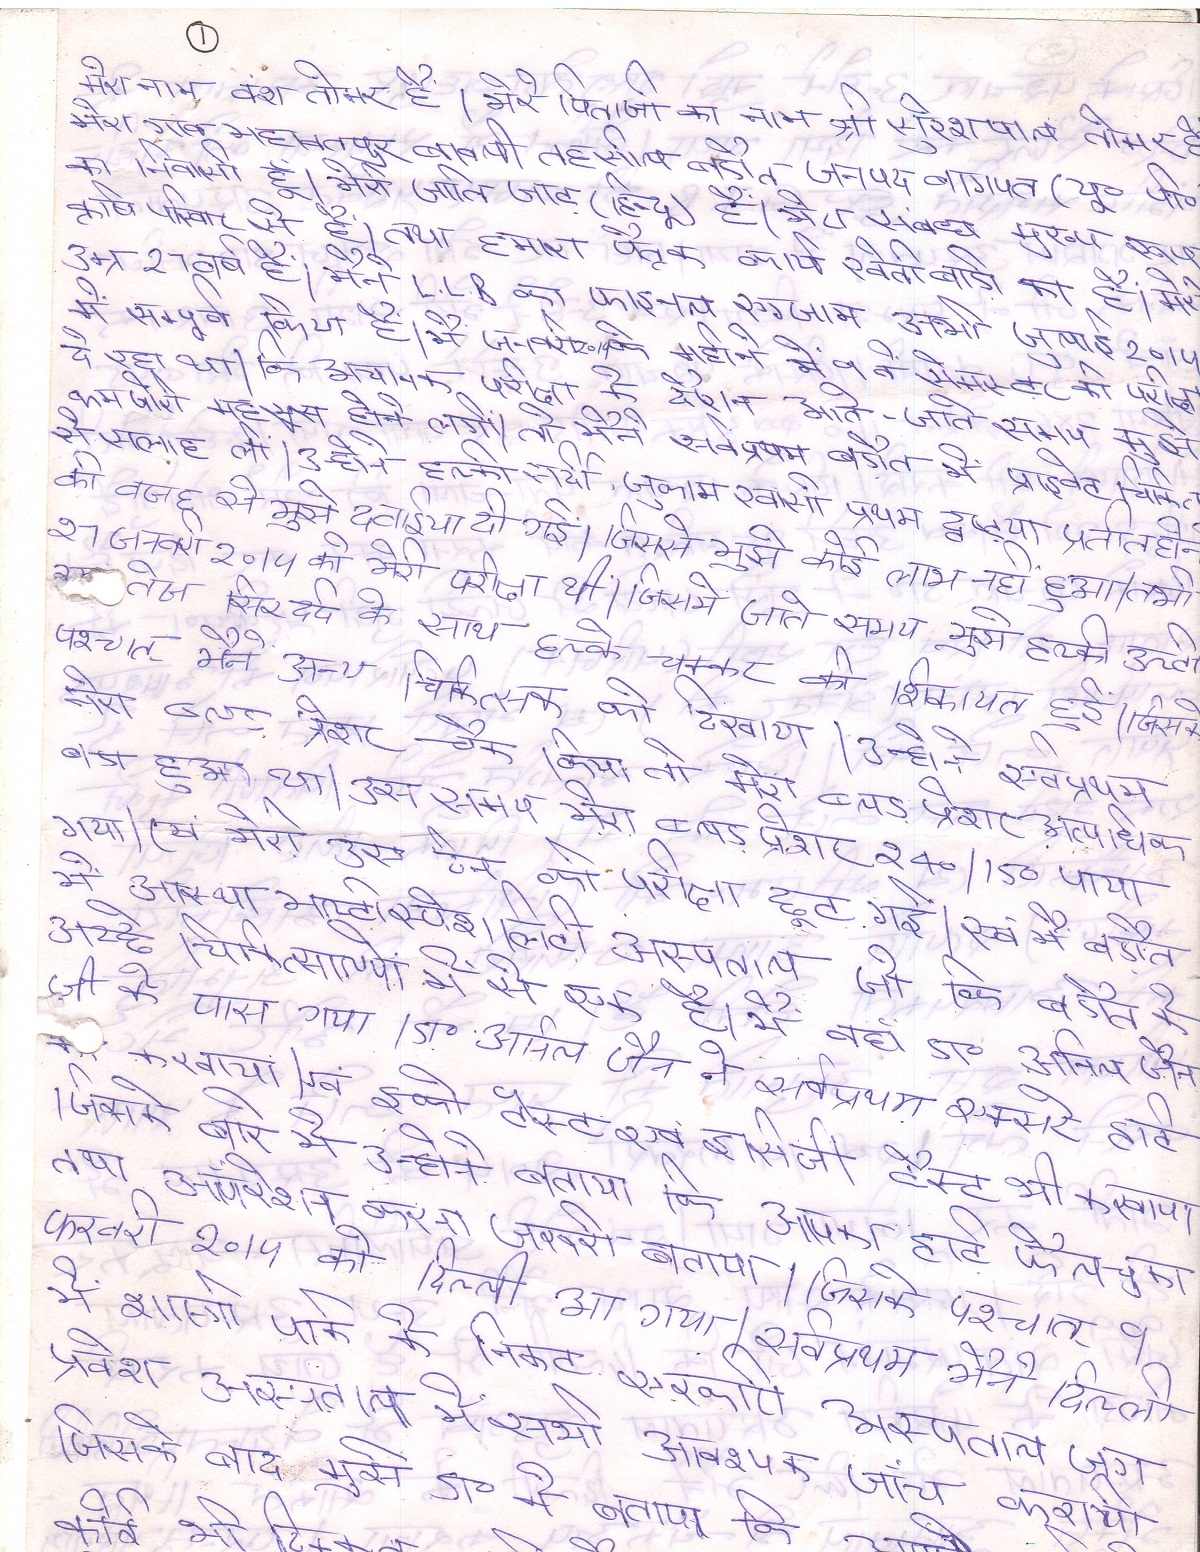 ①
मेरा नाम वंश तोमर है । मेरे पिताजी का नाम श्री सुरेशपाल तोमर है
मेरा गांव महावतपुर बावली तहसील बडौत जनपद बागपत (यू० पी०
का निवासी हूं । मेरी जाति जाट (हिन्दू) है । मेरा संबन्ध मुख्य रूप
कृषि परिवार से है । तथा हमारा पैतृक कार्य खेतीबाडी का है । मेरी
उम्र 27 वर्ष है । मैने L.L.B का फाइनल एग्जाम अभी जुलाई 2014
में सम्पूर्ण किया है । मैं जनवरी 2014 के महीने में 5 वें सेमेस्टर की परीक्षा
दे रहा था । कि अचानक परीक्षा के दौरान आते-जाते समय मुझे
कमजोरी महसूस होने लगी । तो मैने सर्वप्रथम बडौत में प्राइवेट चिकित्स
से सलाह ली । उन्होने हल्की सर्दी, जुकाम खांसी प्रथम दृष्टया प्रतीत होने
की वजह से मुझे दवाईया दी गई । जिससे मुझे कोई लाभ नहीं हुआ । तभी
27 जनवरी 2014 को मेरी परीक्षा थी । जिसमे जाते समय मुझे हल्की उल्टी
तेज सिरदर्द के साथ हल्के चक्कर की शिकायत हुई । जिसके
पश्चात् मैने अन्य चिकित्सक को दिखाया । उन्होने सर्वप्रथम
मेरा ब्लड प्रेशर चैक किया तो मेरा ब्लड प्रेशर अत्यधिक
बडा हुआ था । उस समय मेरा ब्लड प्रेशर 240/150 पाया
गया । एवं मेरी उस दिन की परीक्षा छूट गई । एवं मैं बडौत
में आस्था मल्टीस्पेशलिटी अस्पताल जो कि बडौत के
अच्छे चिकित्सालयों में से एक है । मैं वहां डा० अनिल जैन
जी के पास गया । डा० अनिल जैन ने सर्वप्रथम एक्सरे हार्ट
का करवाया । एवं इको टेस्ट एवं ईसीजी टैस्ट भी करवाया
जिसके बारे में उन्होने बताया कि आपका हार्ट फैल चुका
तथा ऑपरेशन करना जरूरी बताया । जिसके पश्चात् 9
फरवरी 2014 को दिल्ली आ गया । सर्वप्रथम मैंने दिल्ली
में शास्त्री पार्क के निकट सरकारी अस्पताल जग
प्रवेश अस्पताल में सभी आवश्यक जांच करायी
जिसके बाद मुझे डा० ने बताया कि आपको
कोई भी दिक्कत